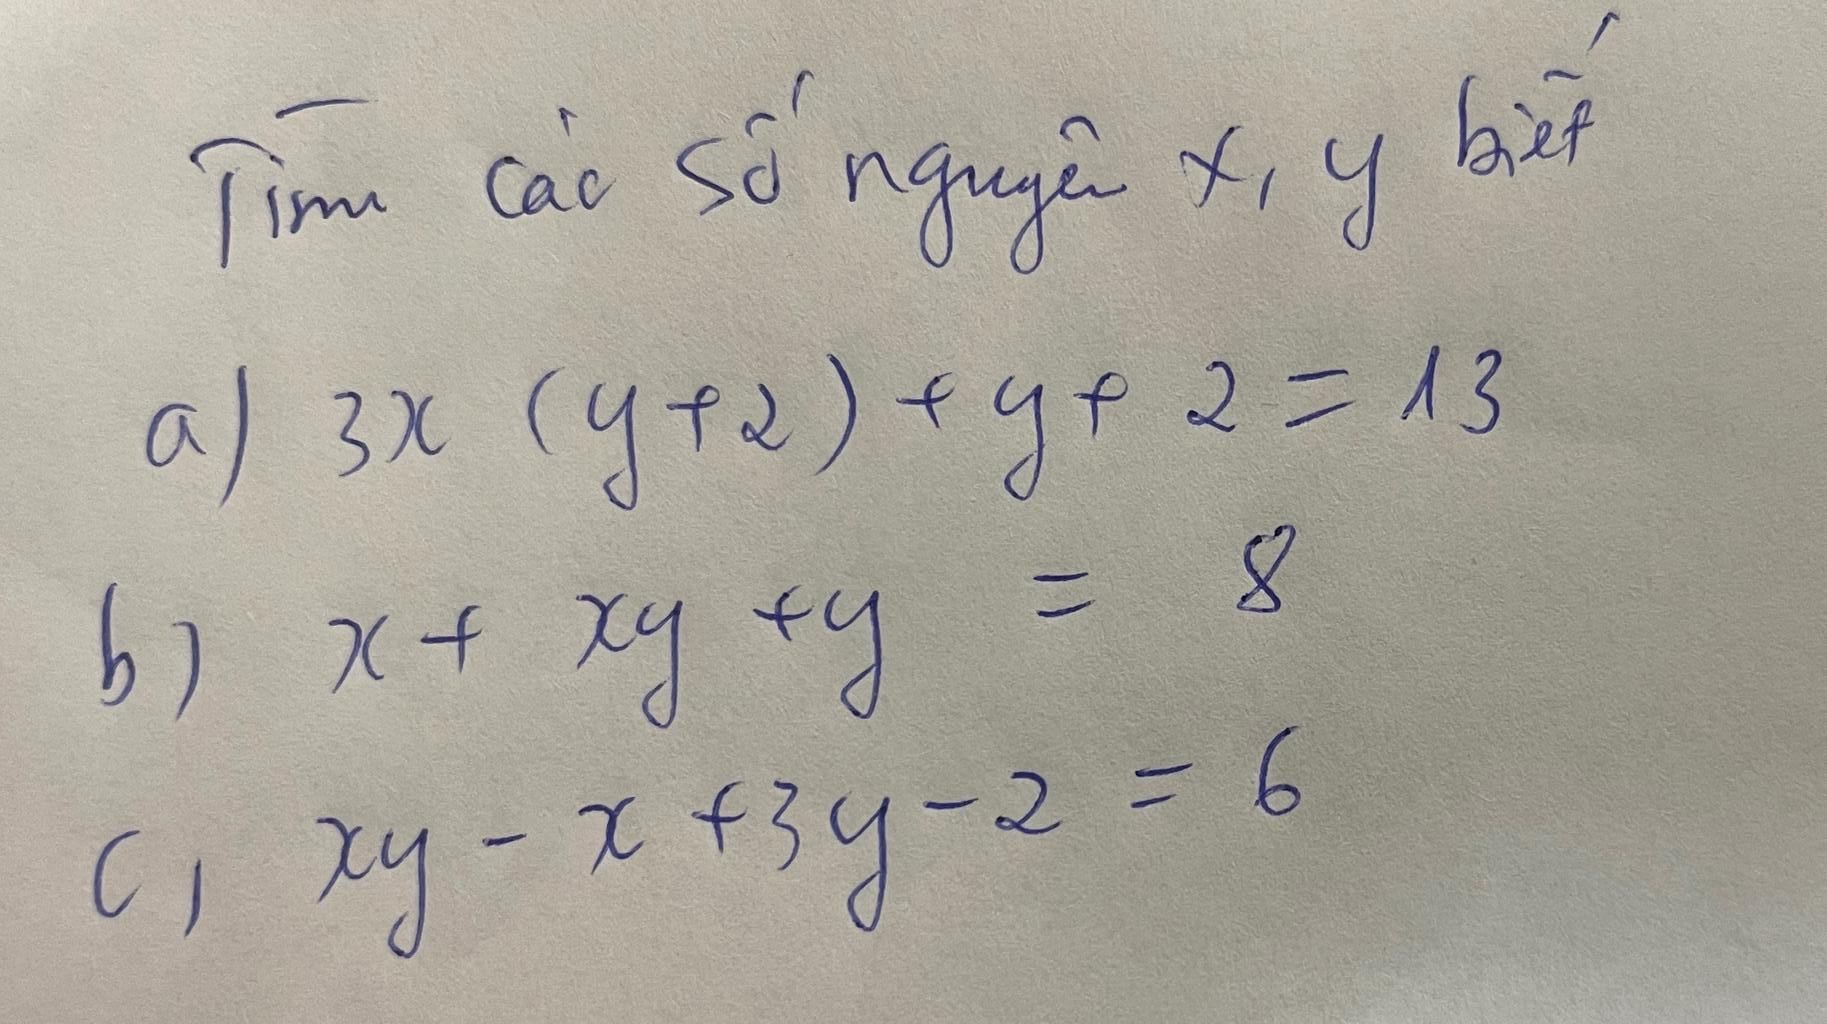 Tìm các số nguyên x, y biết
a) 3x (y+2) + y + 2 = 13
b) x + xy + y = 8
c, xy - x + 3y - 2 = 6